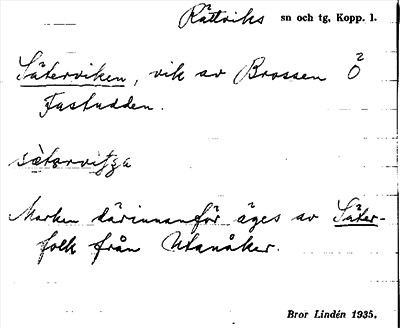 Rättviks sn och tg, Kopp. l.
Säterviken, vik av Brossen Ö²
Fastudden.
sètərvitʒa
Marken därinnanför äges av Säter-
folk från Utanåker.
Bror Lindén 1935.